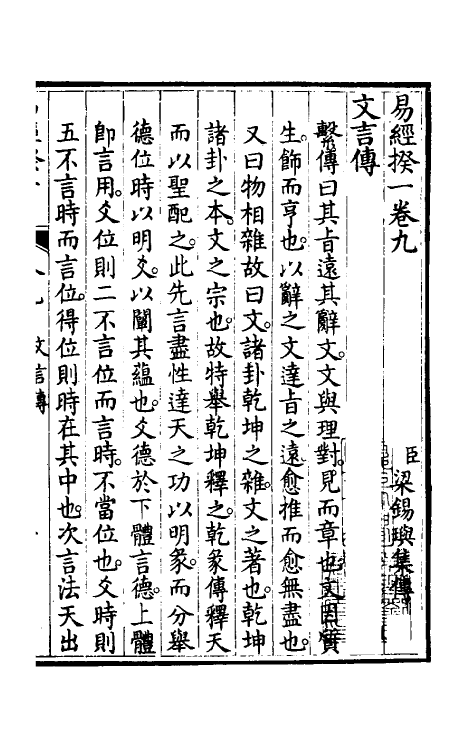 易經揆一卷九
臣梁錫璵集傳
文言傳
繫傳曰其旨遠其辭文文與理對見而章也文因質
生飾而亨也以辭之文達旨之遠愈推而愈無盡也
又曰物相雜故曰文諸卦乾坤之雜文之著也乾坤
諸卦之本文之宗也故特舉乾坤釋之乾彖傳釋天
而以聖配之此先言盡性達天之功以明彖而分舉
德位時以明爻以闡其蘊也爻德於下體言德上體
即言用爻位則二不言位而言時不當位也爻時則
五不言時而言位得位則時在其中也次言法天出
文言傳